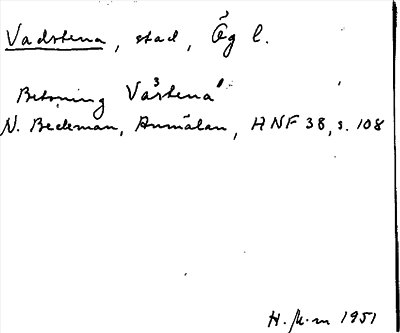 Vadstena, stad, Ög l.
Betoning Va³stena⁰
N. Beckman, Anmälan, HNF 38, s. 108
H. 1951